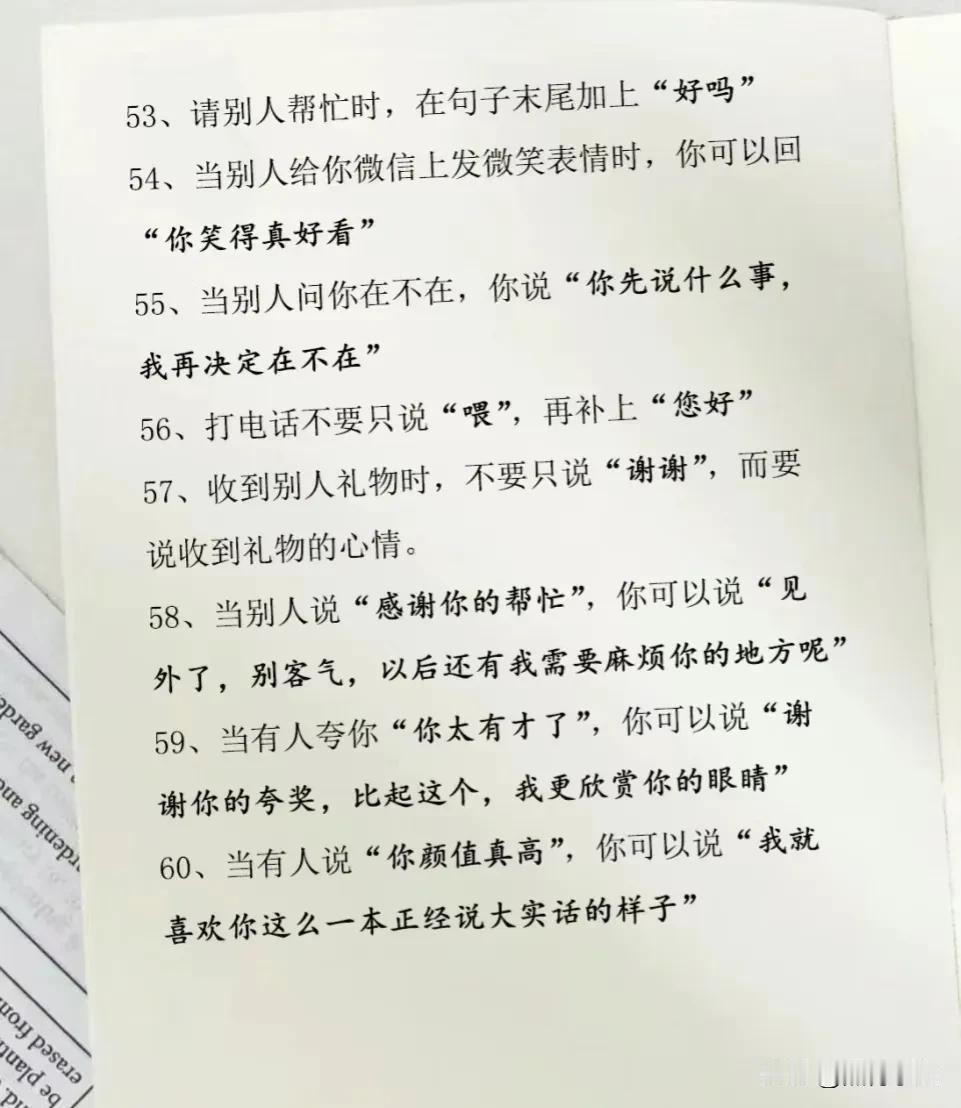 53、请别人帮忙时，在句子末尾加上“好吗”
54、当别人给你微信上发微笑表情时，你可以回
“你笑得真好看”
55、当别人问你在不在，你说“你先说什么事，
我再决定在不在”
56、打电话不要只说“喂”，再补上“您好”
57、收到别人礼物时，不要只说“谢谢”，而要
说收到礼物的心情。
58、当别人说“感谢你的帮忙”，你可以说“见
外了，别客气，以后还有我需要麻烦你的地方呢”
59、当有人夸你“你太有才了”，你可以说“谢
谢你的夸奖，比起这个，我更欣赏你的眼睛”
60、当有人说“你颜值真高”，你可以说“我就
喜欢你这么一本正经说大实话的样子”
new garde
rdening and
erased from
be planti